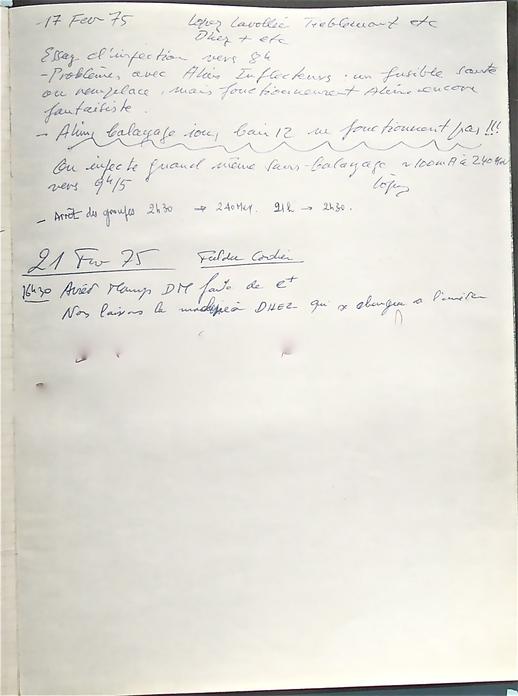 -17 Fev 75 Lopez Lavollée Treblemont etc
Dhez + etc
Essay d'injection vers 8h
- Problèmes avec Alim Inflecteurs. un fusible saute
on remplace, mais fonctionnement Alim encore
fantaisiste.
- Alim balayage ions bain 12 ne fonctionnent pas !!!
On injecte quand même sans balayage ~100mA à 240 Mev
vers 9h15 Lopez
- Arrêt des groupes 2h30 → 240 Mev. 21h → 2h30.
21 Fev 75 Cordier
16h30 Arrêt DM faute de e+
Nous laissons la à DHEZ qui à